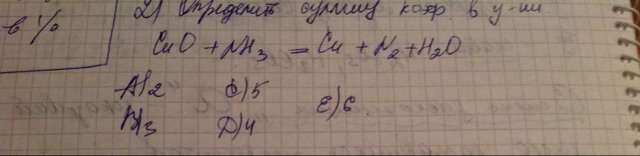 в %
2) Определить сумму коэф. в у-ии
CuO + NH3 = Cu + N2 + H2O
A) 2 C) 5 E) 6
B) 3 D) 4